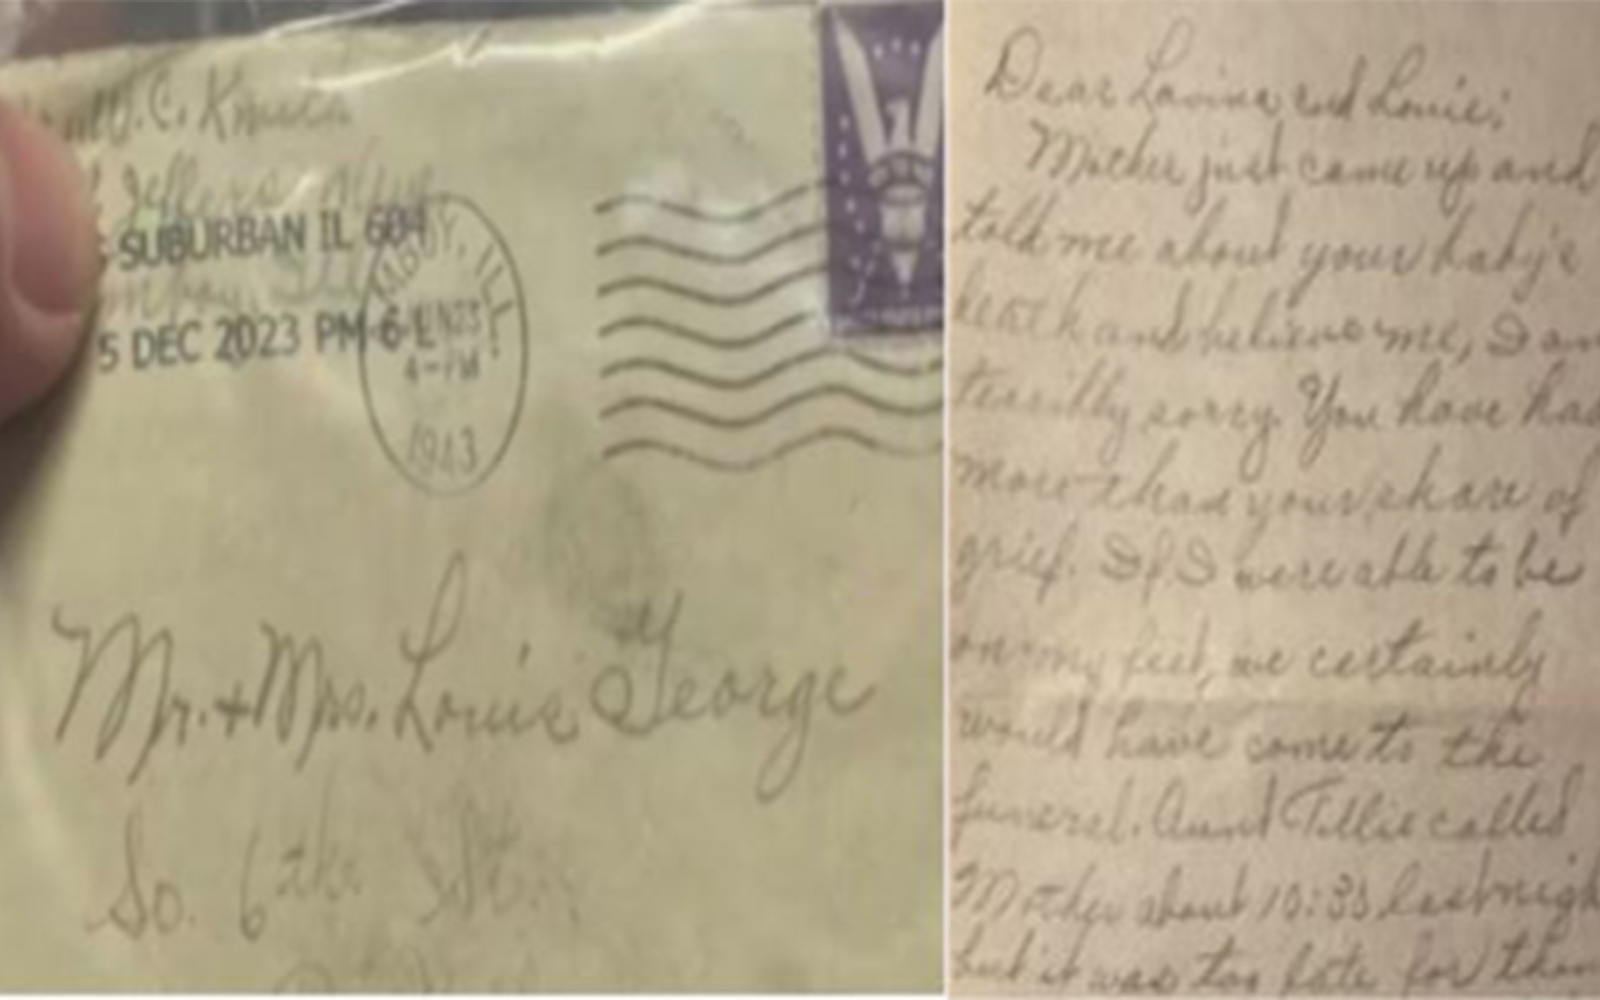 W.C.
SUBURBAN IL 604
5 DEC 2023 PM 6 L
ILL.
4-PM
1943
Mr. + Mrs. Louis George
So. 6th St.
Dear Lavina and Louie:
Mother just came up and
told me about your baby's
death and believe me, I am
terribly sorry. You have had
more than your share of
grief. If I were able to be
on my feet, we certainly
would have come to the
funeral. Aunt Tillie called
Mother about last
but it was too late for